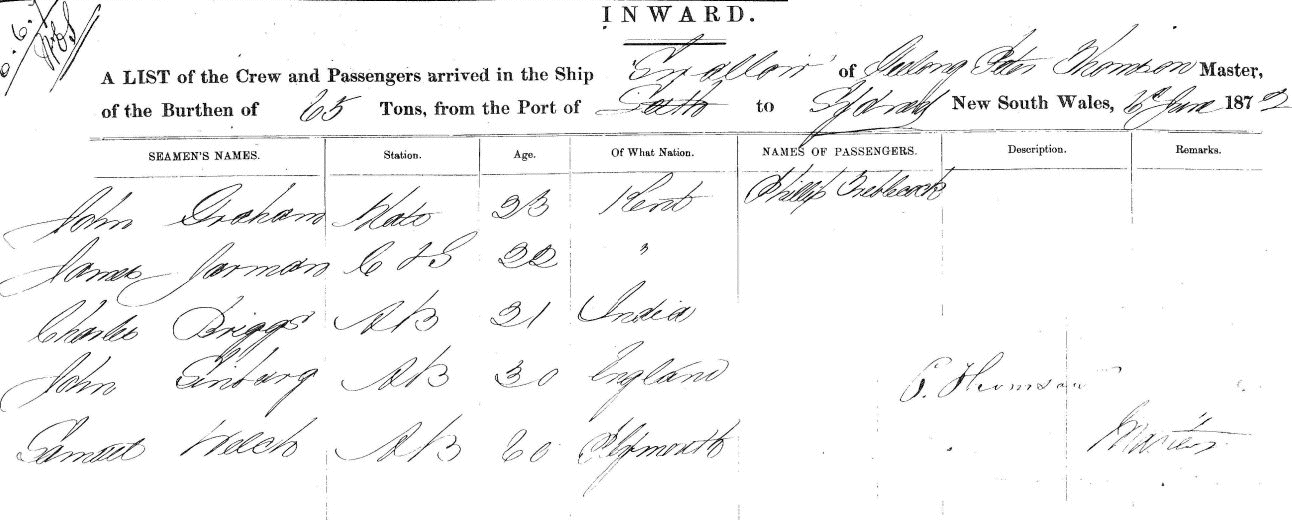 INWARD.
A LIST of the Crew and Passengers arrived in the Ship "Swallow" of Geelong Peter Thomson Master,
of the Burthen of 65 Tons, from the Port of to Sydney New South Wales, 6th June 1872
SEAMEN'S NAMES. Station. Age. Of What Nation. NAMES OF PASSENGERS. Description. Remarks.
John Graham Mate 23 Kent Phillip Treblecock
James Jarman C & S 22 "
Charles Briggs AB 21 India
John Ginburg AB 30 England P. Thomson
Samuel Welch AB 60 Plymouth Master